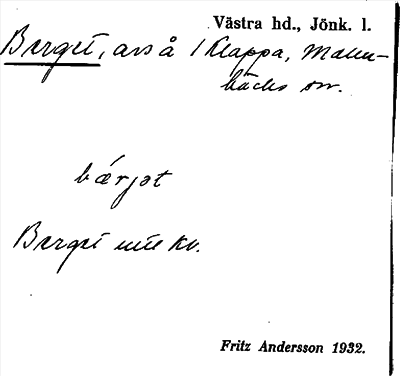 Västra hd., Jönk. l.
Berget, avs å 1 Klappa, Malm-
bäcks sn.
bærjət
Berget
Fritz Andersson 1932.